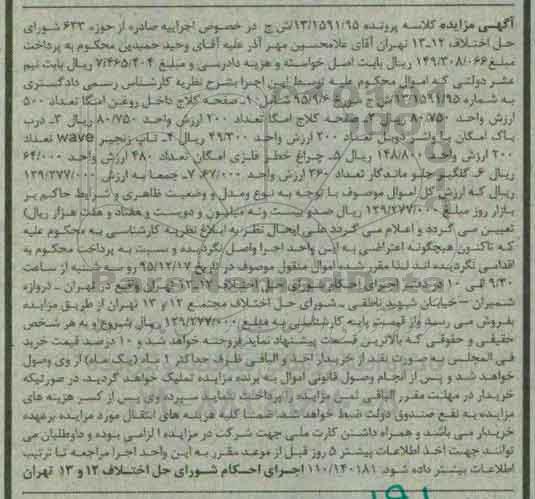 آگهی مزایده کلاسه پرونده ۱۳/۱۵۹۱/۹۵/ش ح در خصوص اجراییه صادره از حوزه ۶۳۳ شورای
حل اختلاف ۱۲ـ۱۳ تهران آقای غلامحسین مهر آذر علیه آقای وحید حمیدین محکوم به پرداخت
مبلغ ۱۴۹/۳۰۸/۰۶۶ ریال بابت اصل خواسته و هزینه دادرسی و مبلغ ۷/۴۶۵/۴۰۴ ریال بابت نیم
عشر دولتی که اموال محکوم علیه توسط این اجرا بشرح نظریه کارشناس رسمی دادگستری
به شماره ۱۳/۱۵۹۱/۹۵/ش ح مورخ ۹۵/۹/۶ شامل ۱ـ صفحه کلاج داخل روغن امگا تعداد ۵۰۰
ارزش واحد ۸۰/۷۵۰ ریال ۲ـ صفحه کلاج امگا تعداد ۲۰۰ ارزش واحد ۸۰/۷۵۰ ریال ۳ـ درب
باک امگان با واشر دوبل تعداد ۲۰۰ ارزش واحد ۴۹/۳۰۰ ریال ۴ـ تاپ زنجیر wave تعداد
۲۰۰ ارزش واحد ۱۴۸/۸۰۰ ریال ۵ـ چراغ خطر فلزی امگان تعداد ۴۸۰ ارزش واحد ۶۴/۰۰۰
ریال ۶ـ گلگیر جلو ماندگار تعداد ۳۶۰ ارزش واحد ۶۷/۰۰۰ ۷ـ جمعا به ارزش ۱۲۹/۲۷۷/۰۰۰
ریال که ارزش کل اموال موصوف با توجه به نوع ومدل و وضعیت ظاهری و شرایط حاکم بر
بازار روز مبلغ ۱۲۹/۲۷۷/۰۰۰ ریال صدو بیست ونه میلیون و دویست وهفتاد و هفت هزار ریال)
تعیین می گردد و اعلام می گردد علی ایحال نظر به ابلاغ نظریه کارشناسی به محکوم علیه
که تاکنون هیچگونه اعتراضی به این واحد اجرا واصل نگردیده و نسبت به پرداخت محکوم به
اقدامی نگردیده اند لذا مقرر شده اموال منقول موصوف در تاریخ ۹۵/۱۲/۱۷ رو سه شنبه از ساعت
۹/۳۰ الی ۱۰ در دفتر اجرای احکام شورای حل اختلاف ۱۲ـ۱۳ تهران واقع در تهران ـ دروازه
شمیران –خیابان شهید ناطقی ـ شورای حل اختلاف مجتمع ۱۲و ۱۳ تهران از طریق مزایده
بفروش می رسد واز قیمت پایه کارشناسی به مبلغ ۱۲۹/۲۷۷/۰۰۰ ریال شروع و به هر شخص
حقیقی و حقوقی که بالاترین قیمت پیشنهاد نماید فروخته خواهد شد و ۱۰ درصد قیمت خرید
فی المجلس به صورت نقد از خریدار اخذ و الباقی ظرف حداکثر ۱ ماه (یک ماه) از وی وصول
خواهد شد و پس از انجام وصول قانونی اموال به برنده مزایده تملیک خواهد گردید. در صورتیکه
خریدار در مهلت مقرر الباقی ثمن مزایده را پرداخت ننماید سپرده وی پس از کسر هزینه های
مزایده به نفع صندوق دولت ضبط خواهد شد. ضمنا کلیه هزینه های انتقال مورد مزایده برعهده
خریدار می باشد و همراه داشتن کارت ملی جهت شرکت در مزایده الزامی بوده و داوطلبان می
توانند جهت اخذ اطلاعات بیشتر ۵ روز قبل از موعد مقرر به این واحد اجرا مراجعه تا ترتیب
اطلاعات بیشتر داده شود. ۱۱۰/۱۴۰۱۸۱ اجرای احکام شورای حل اختلاف ۱۲ و ۱۳ تهران